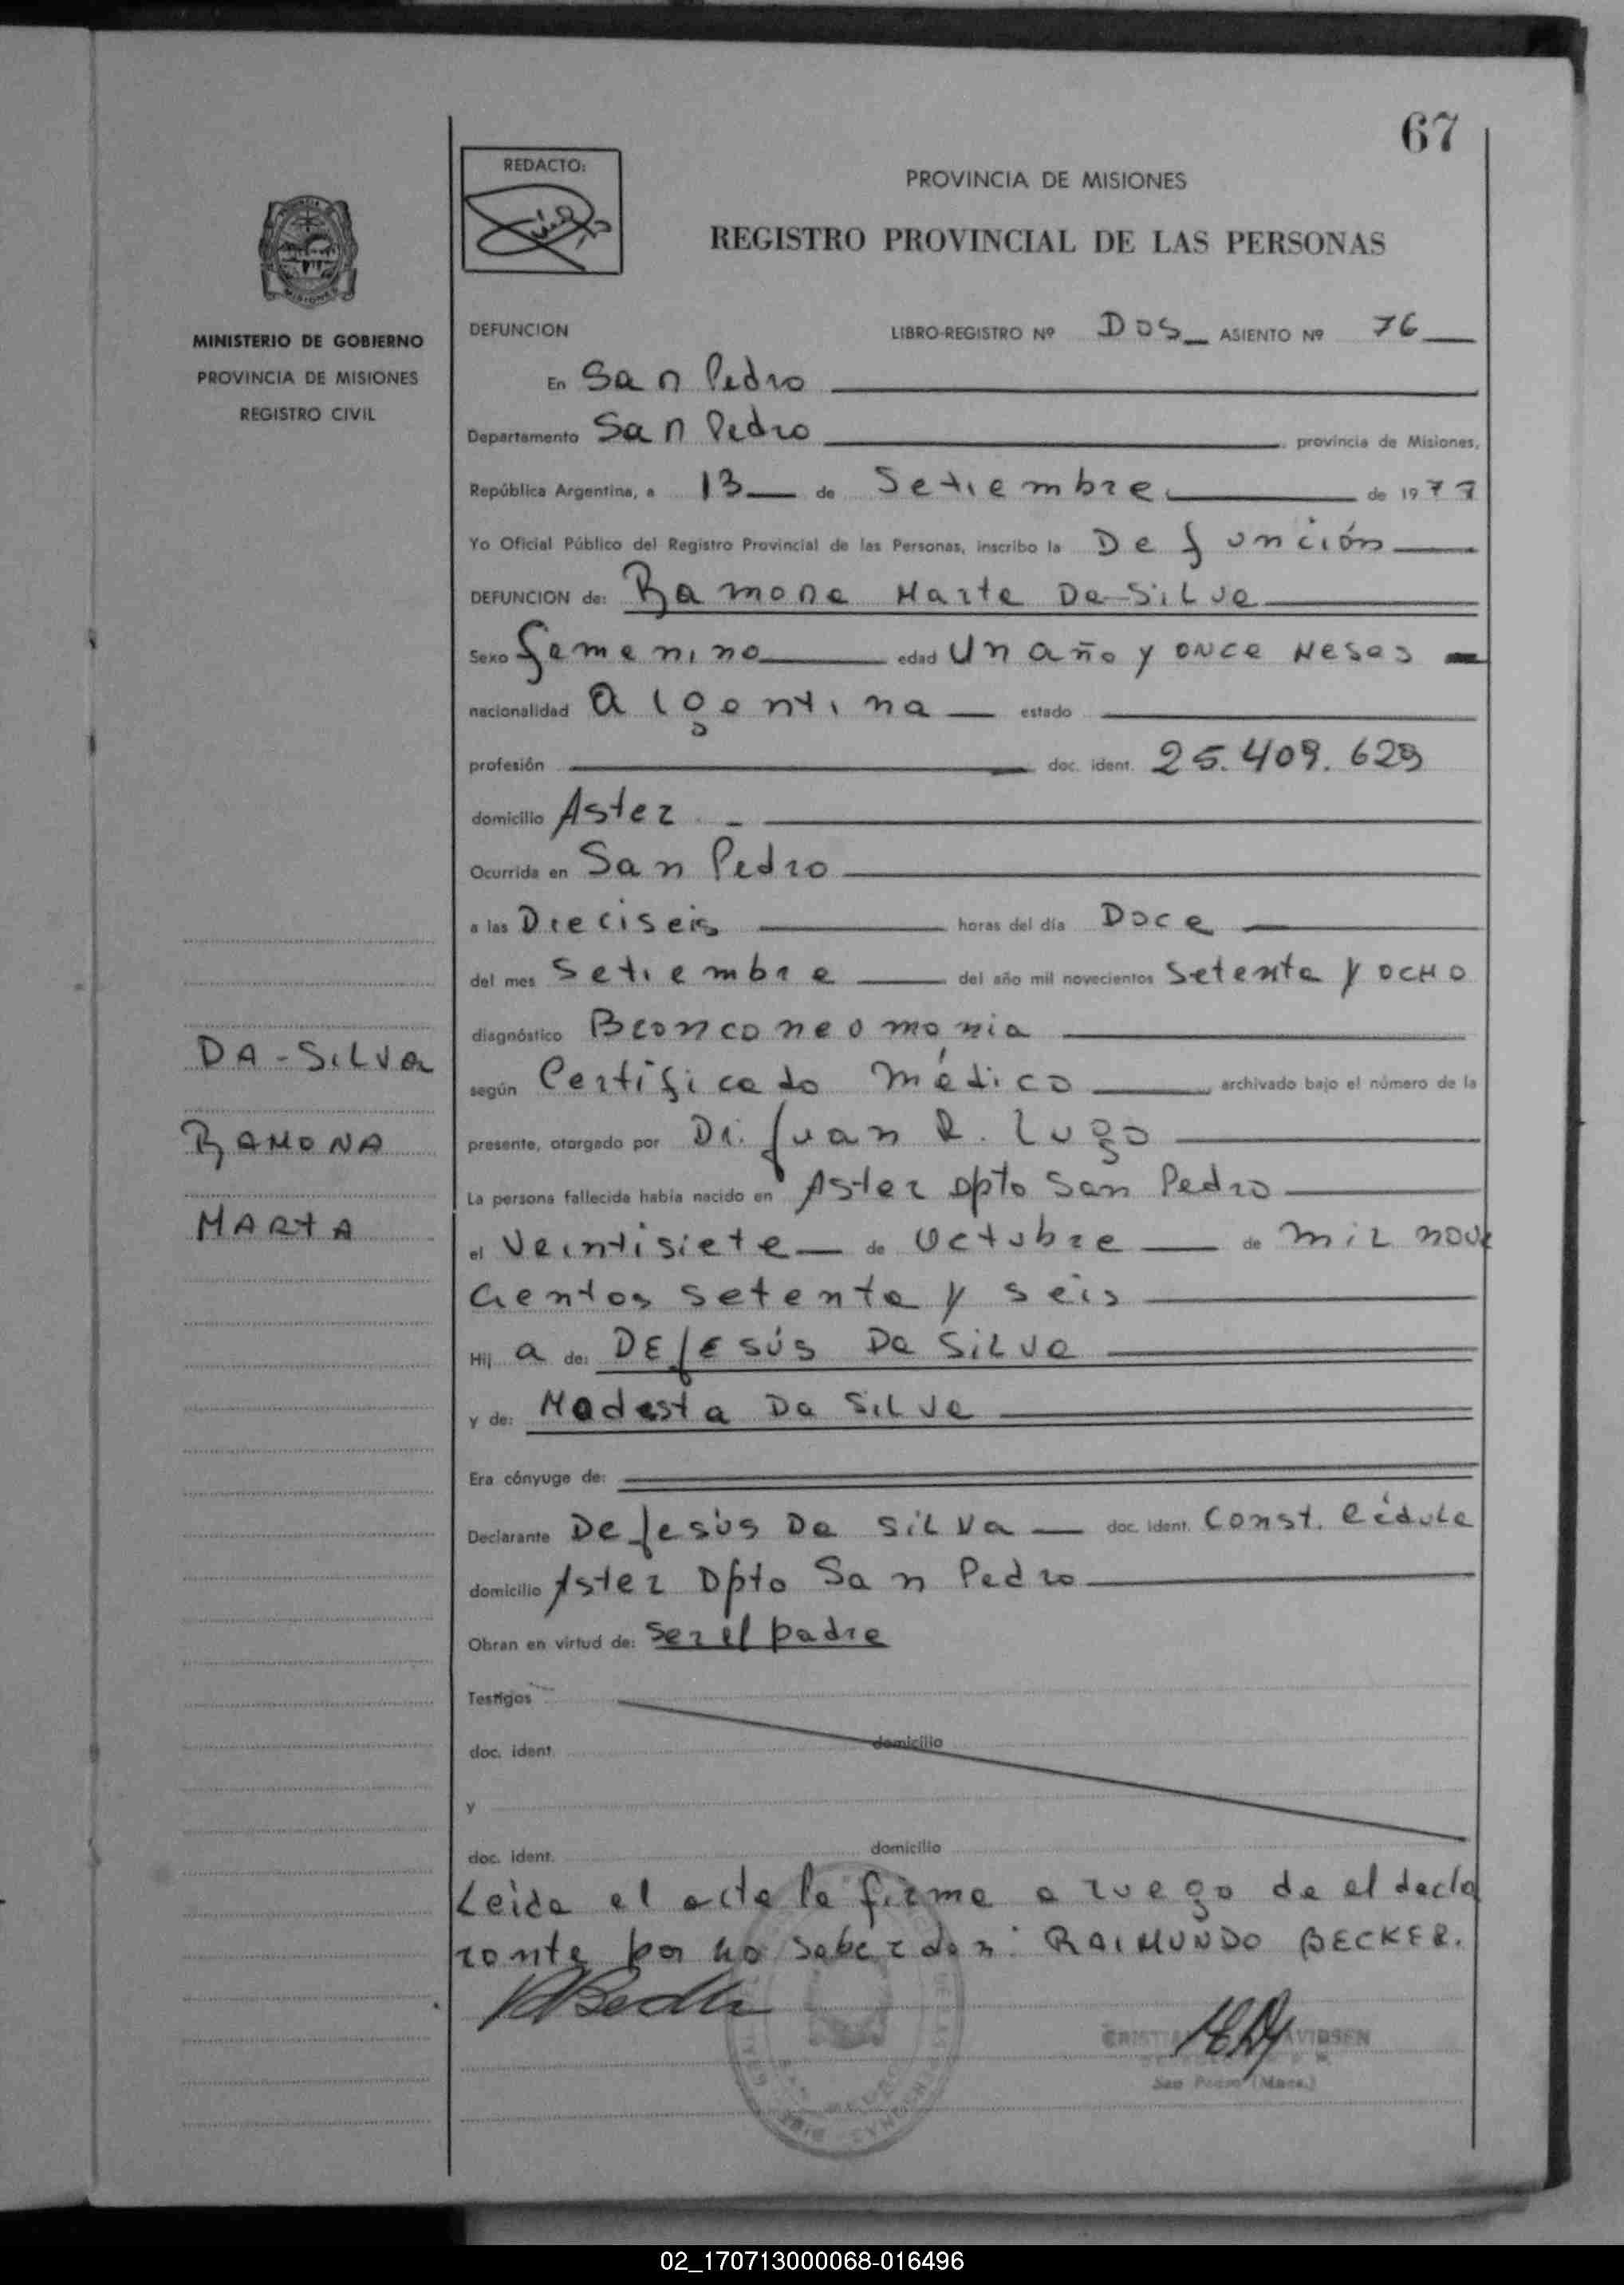 67
REDACTO:
PROVINCIA DE MISIONES
REGISTRO PROVINCIAL DE LAS PERSONAS
MINISTERIO DE GOBIERNO
PROVINCIA DE MISIONES
REGISTRO CIVIL
DEFUNCION LIBRO-REGISTRO Nº DOS ASIENTO Nº 76
En San Pedro
Departamento San Pedro provincia de Misiones,
República Argentina, a 13 de Setiembre de 1977
Yo Oficial Público del Registro Provincial de las Personas, inscribo la Defunción
DEFUNCION de: Ramona Marta Da-Silva
Sexo Femenino edad Un año y once Meses
nacionalidad argentina estado
profesión doc. ident. 25.409.629
domicilio Aster
Ocurrida en San Pedro
a las Dieciseis horas del día Doce
del mes Setiembre del año mil novecientos Setenta y ocho
diagnóstico Bronconeomonia
según Certificado médico archivado bajo el número de la
presente, otorgado por Dr. Juan R. Lugo
La persona fallecida había nacido en Aster Dpto San Pedro
el Veintisiete de Octubre de mil nove
cientos setenta y seis
Hij a de: DEJESÚS Da SiLva
y de: Modesta Da SiLva
Era cónyuge de:
Declarante DeJesús Da SiLva doc. ident. Const. Cédula
domicilio Aster Dpto San Pedro
Obran en virtud de: Ser el padre
Testigos
doc. ident. domicilio
y
doc. ident. domicilio
Leida el acta la firma a ruego de el decla
rante por no saber don: RAIMUNDO BECKER.
San Pedro (Mnes.)
DA-SiLva
RAMONA
MARTA
02_170713000068-016496